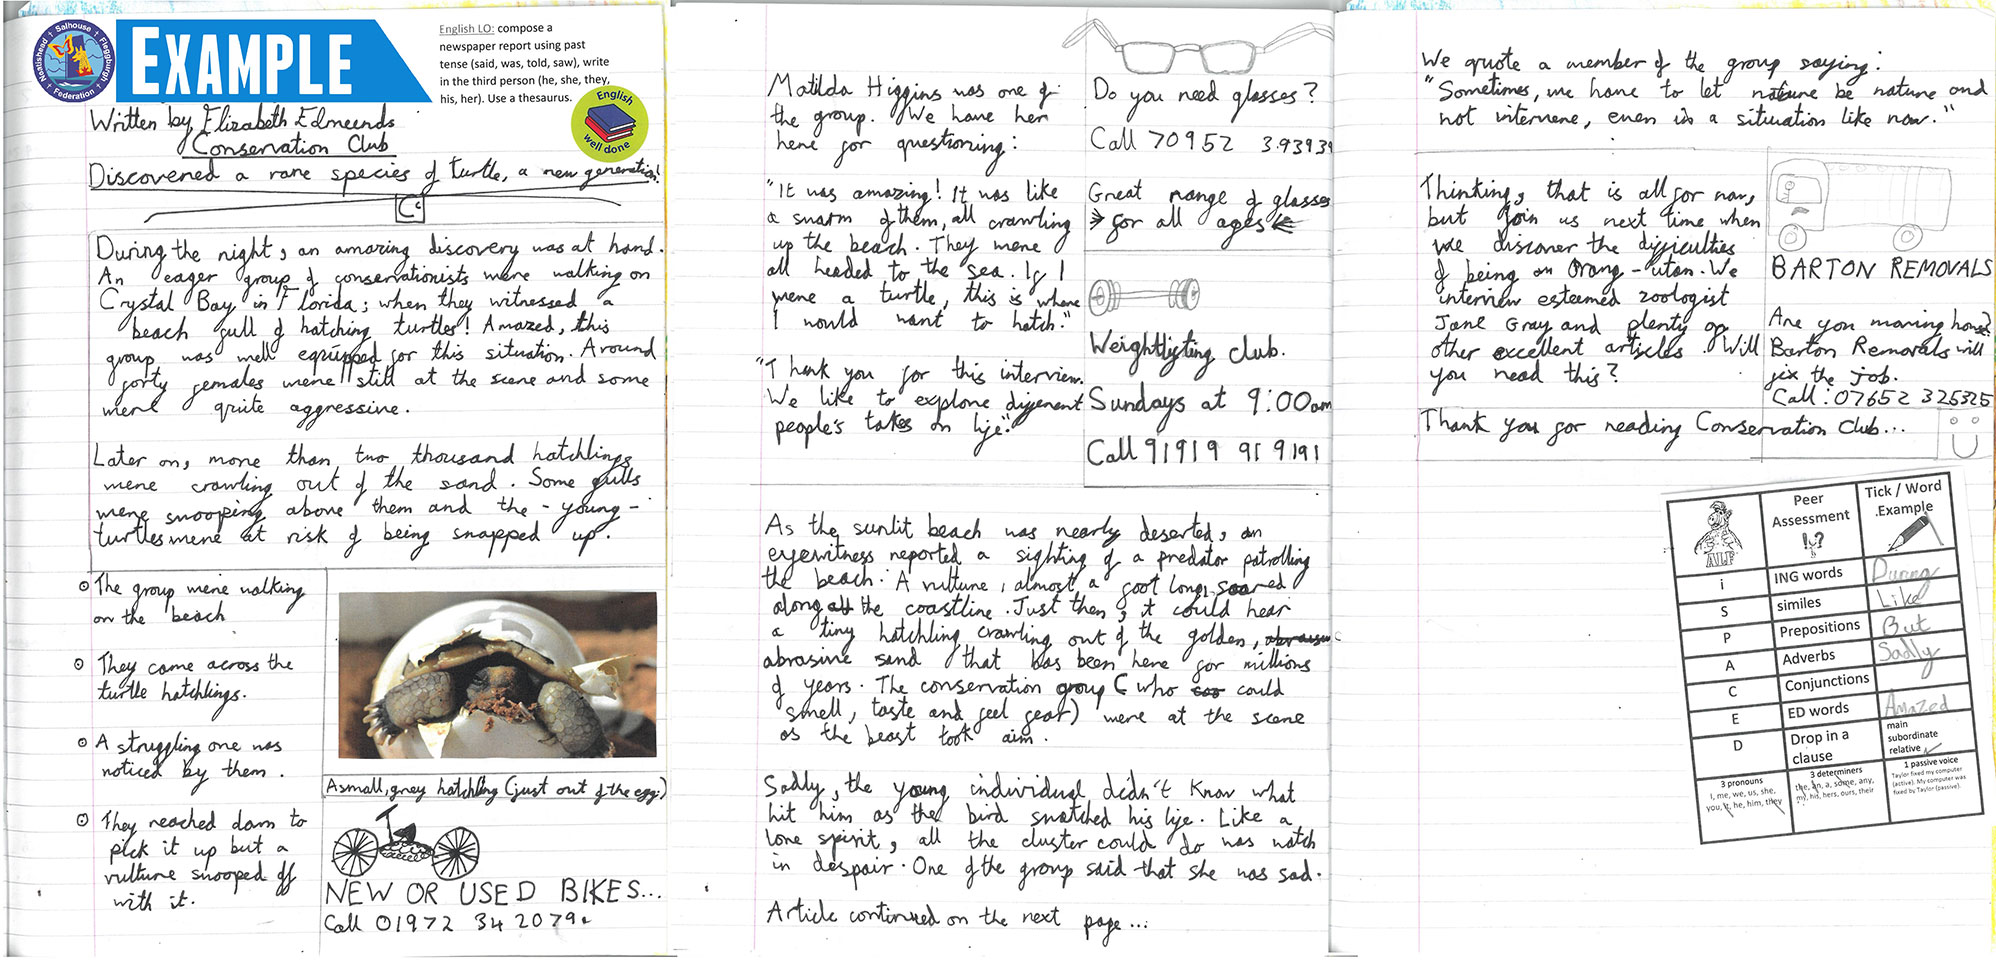 Neatishead † Salhouse † Fleggburgh † Federation
EXAMPLE
English LO: compose a
newspaper report using past
tense (said, was, told, saw), write
in the third person (he, she, they,
his, her). Use a thesaurus.
English
well done
Written by Elizabeth Edmeends
Conservation Club
Discovered a rare species of turtle, a new generation!
CC
During the night, an amazing discovery was at hand.
An eager group of conservationists were walking on
Crystal Bay in Florida; when they witnessed a
beach full of hatching turtles! Amazed, this
group was well equipped for this situation. Around
forty females were still at the scene and some
were quite aggressive.
Later on, more than two thousand hatchlings
were crawling out of the sand. Some gulls
were snooping above them and the - young -
turtles were at risk of being snapped up.
The group were walking
on the beach
They came across the
turtle hatchlings.
A struggling one was
noticed by them.
They reached down to
pick it up but a
vulture snooped off
with it.
A small, grey hatchling (just out of the egg)
NEW OR USED BIKES...
Call 01972 34 2079
Matilda Higgins was one of
the group. We have her
here for questioning:
"It was amazing! It was like
a swarm of them, all crawling
up the beach. They were
all headed to the sea. If I
were a turtle, this is where
I would want to hatch."
"Thank you for this interview.
We like to explore different
people's takes on life."
Do you need glasses?
Call 70952 3.93939
Great range of glasses
for all ages
Weightlifting club.
Sundays at 9:00am
Call 91919 919191
As the sunlit beach was nearly deserted, an
eyewitness reported a sighting of a predator patrolling
the beach. A vulture, almost a foot long, soared
along the coastline. Just then, it could hear
a tiny hatchling crawling out of the golden,
abrasive sand that has been here for millions
of years. The conservation group (who could
smell, taste and feel fear) were at the scene
as the beast took aim.
Sadly, the young individual didn't know what
hit him as the bird snatched his life. Like a
lone spirit, all the cluster could do was watch
in despair. One of the group said that she was sad.
Article continued on the next page...
We quote a member of the group saying:
"Sometimes, we have to let nature be nature and
not intervene, even in a situation like now."
Thinking, that is all for now,
but join us next time when
we discover the difficulties
of being an Orang-utan. We
interview esteemed zoologist
Jane Gray and plenty of
other excellent articles. Will
you need this?
BARTON REMOVALS
Are you moving house?
Barton Removals will
fix the job.
Call: 07652 325325
Thank you for reading Conservation Club...
ALF
Peer
Assessment
!?
Tick / Word
.Example
i ING words During
S similes Like
P Prepositions But
A Adverbs Sadly
C Conjunctions
E ED words Amazed
D Drop in a
clause
main
subordinate
relative
3 pronouns
I, me, we, us, she,
you, it, he, him, they
3 determiners
the, an, a, some, any,
my, his, hers, ours, their
1 passive voice
Taylor fixed my computer
(active). My computer was
fixed by Taylor (passive).